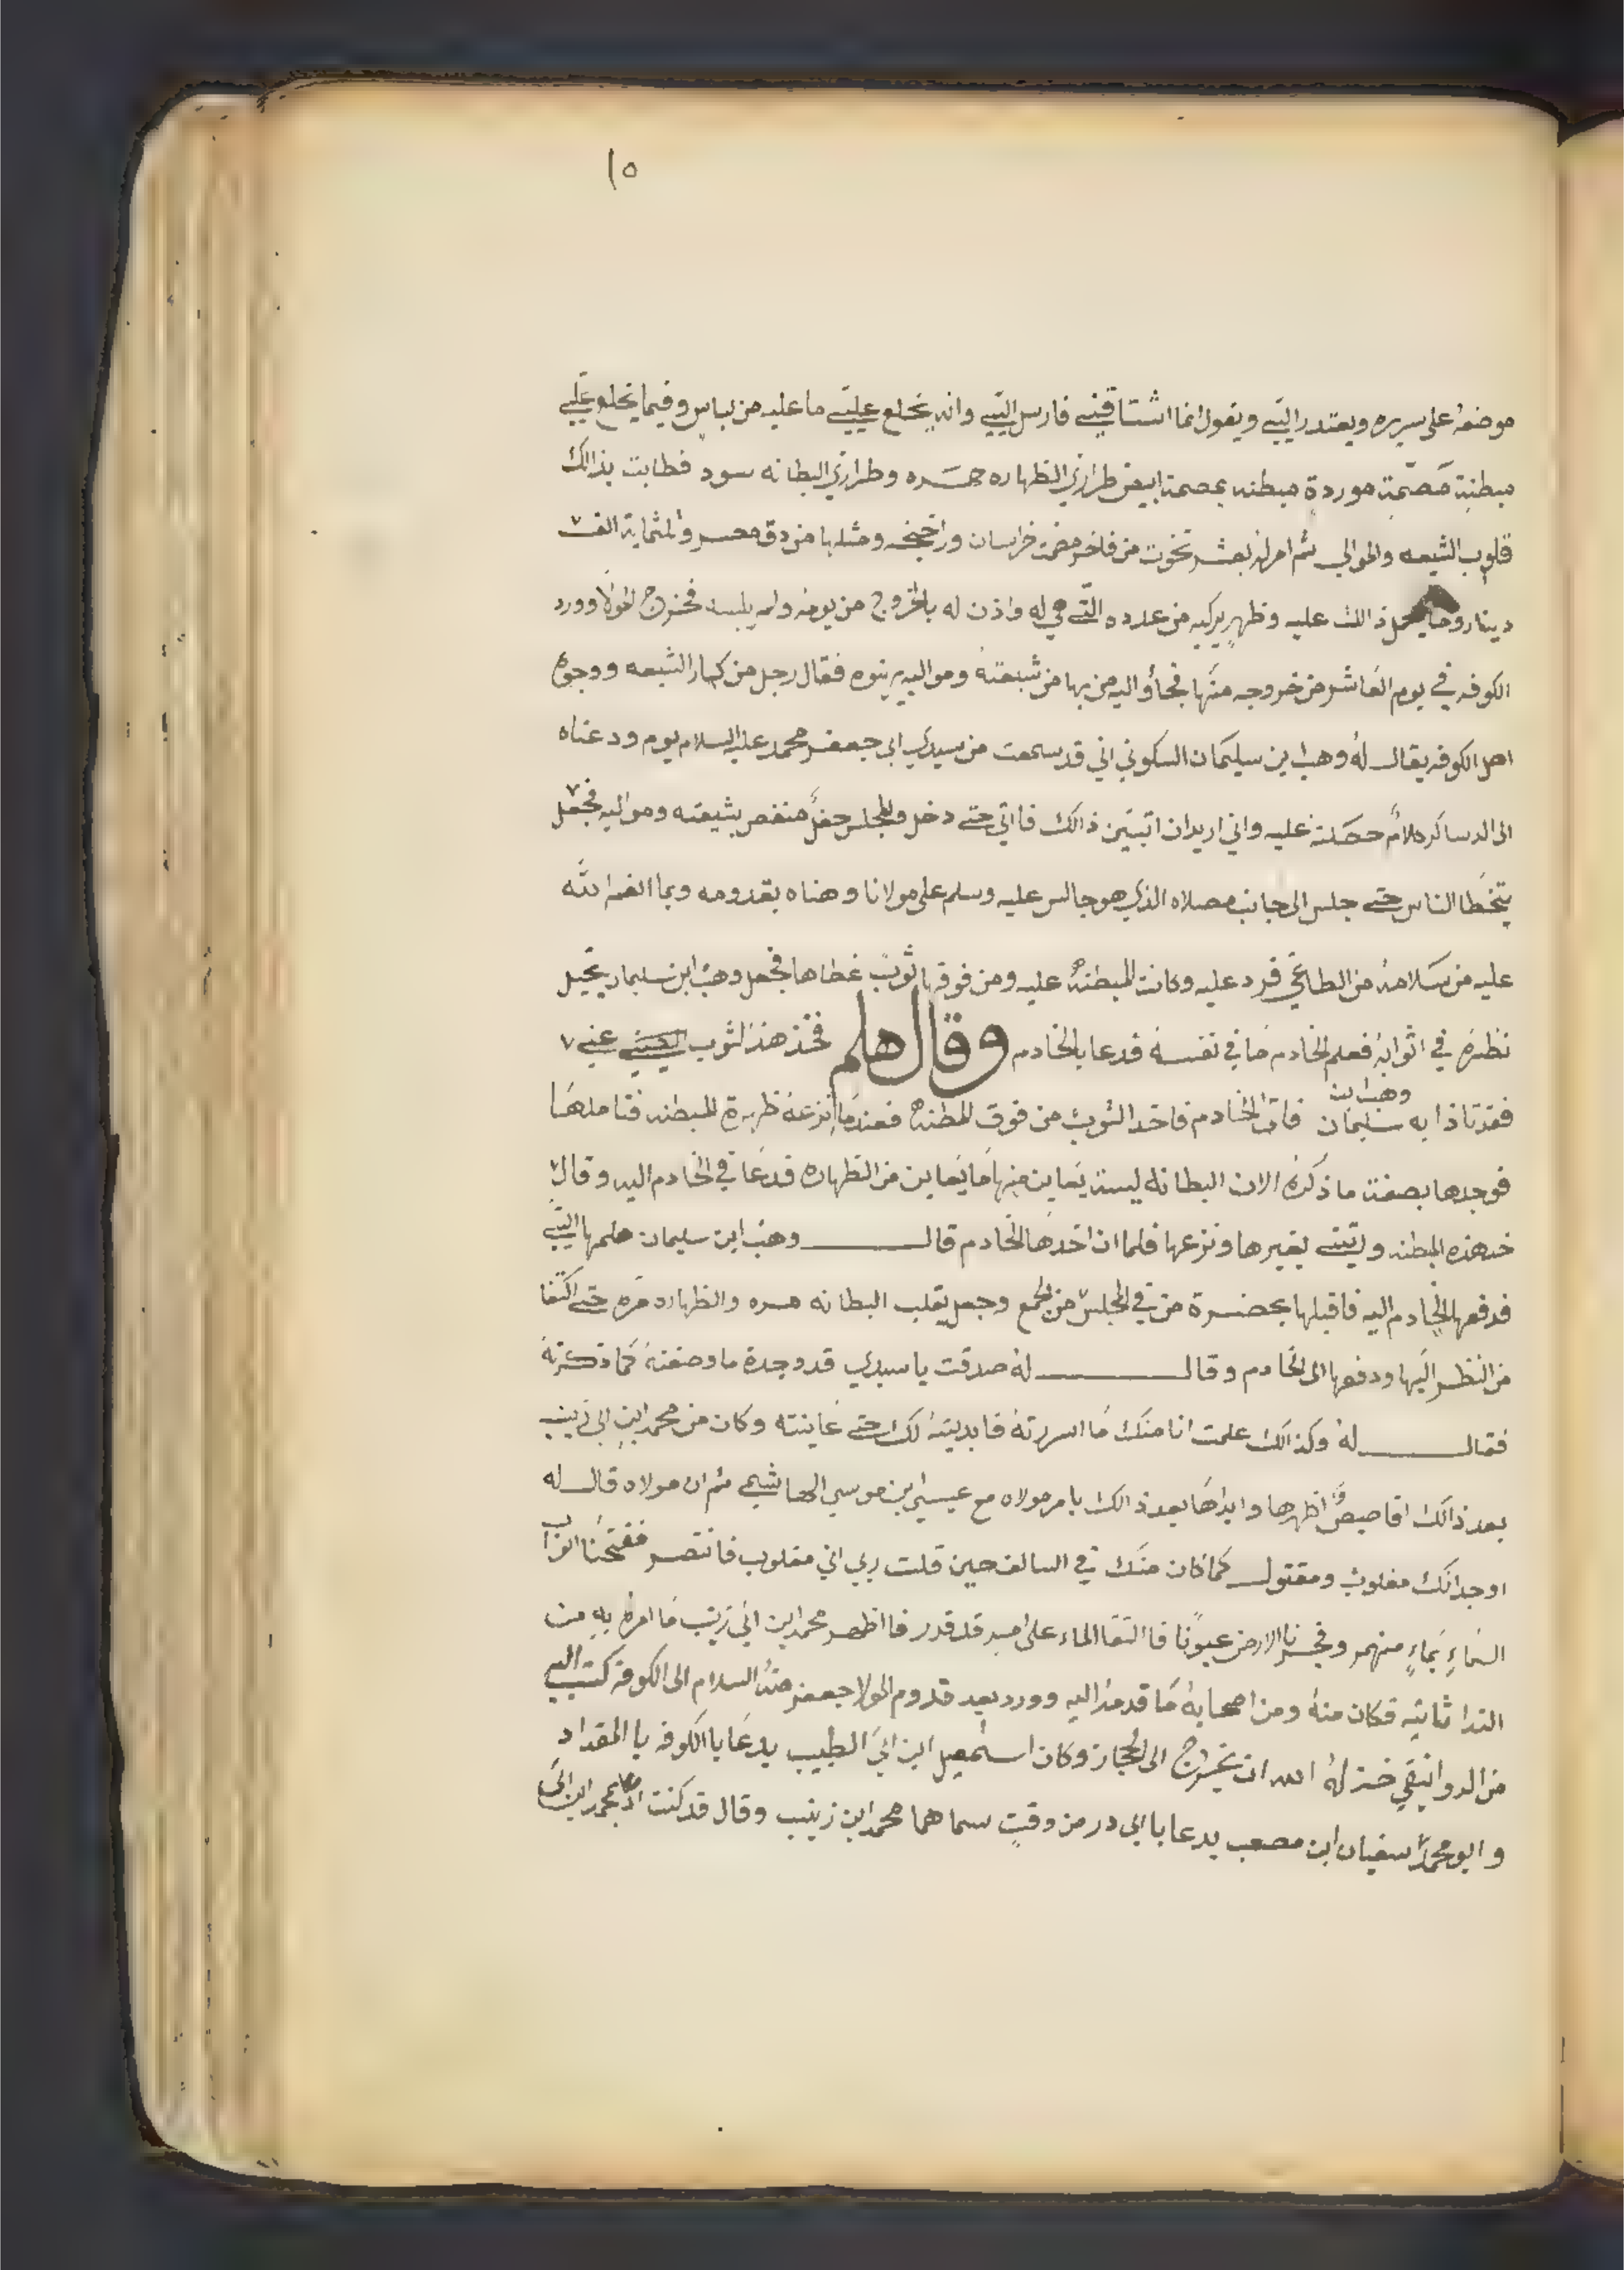 ١٥
موضعهُ على سريره ويعتدر اليّي ويقول انما اشتاقني فارس اليّي وانه يخلع عليّي ما عليه من لباس وفيما يخلع عليّي
مبطنة مصمّتة موردة مبطنه بمصمة ابيض طرازي الظهاره حمره وطرازي البطانه سود فطابت بذالك
قلوب الشيعه والموالي ثم امر له بعشر تخوت من فاخر خراسان ومثلها من دق مصر الف
دينار ذالك عليه وظهر يركبه من عدده التّي هي له واذن له بالخروج من يومه ولم يلبسه فخرج المولا وورد
الكوفه في يوم العاشر من خروجه منها فجاؤ اليه من بها من شيعتهُ ومواليه يرينوه فقال رجل من كبار الشيعه ووجوه
اهل الكوفه يقال لهُ وهب ابن سليمان السكوني اني قد سمعت من سيدي ابي جعفر محمد عليه السلام يوم ودعناه
الى الدساكر عليه واني اريد ان اتبيّن ذالك فاتي حتى دخل والمجلس حفل منغص بشيعته ومواليه فجعل
يتخطا الناس حتى جلس الى جانب مصلاه الذي هو جالس عليه وسلم على مولانا وهناه بقدومه وبما انعم الله
عليه من سلامته من الطاغي فرد عليه وكانت المبطنه عليه ومن فوقها ثوب غطاها فجعل وهب ابن سليمان يجيل
نظرهُ في اثوابهُ فعلم الخادم ما في نفسهُ فدعا بالخادم وقال هلم فخذ هذا الثوب عني
فقد تاذا به وهب ابن سليمان فاتا الخادم فاخد الثوب من فوق المبطنه فعندما انزعهُ ظهرة المبطنه فتاملها
فوجدها بصفت ما ذكرهُ الان البطانه ليست يعاين منها ما يعاين من الظهاره فدعا في الخادم اليه وقال
خد هذه المبطنه واتيني بغيرها ونزعها فلما ان اخدها الخادم قال وهب ابن سليمان هلمها اليّي
فدفعها الخادم اليه فاقبلها بحضرة من في المجلس من الجمع وجعل يقلب البطانه مره والظهاره مره حتى اكتفا
من النظر اليها ودفعها الى الخادم وقال لهُ صدقت يا سيدي قد وجدة ما وصفتهُ كما ذكرتهُ
فقال لهُ وكذالك علمت انا منك ما اسررتهُ فابديتهُ لك حتى عاينته وكان من محمد ابن ابي زينب
بعد ذالك اقاصيص اظهرها وابداها بعد ذالك بامر مولاه مع عيسى ابن موسى الهاشمي ثم ان مولاه قال له
اوجد انك مغلوب ومقتول كما كان منك في السالف حين قلت ربي اني مغلوب فانتصر ففتحنا ابواب
السماءِ بماءٍ منهمر وفجرنا الارض عيوناً فا التقا الماء على امر قد قدر فا اظهر محمد ابن ابي زينب ما امرهُ بهِ من
الندا ثانيه فكان منهُ ومن اصحابهُ ما قدمهُ اليه وورد بعد قدوم المولا جعفر منهُ السلام الى الكوفه كتب اليه
من الدوانيقي خزلهُ الله ان يخرج الى الحجاز وكان اسمعيل ابن ابي الطبيب يدعا بالكوفه با المقداد
وابو محمد سفيان ابن مصعب يدعا بابي در من وقتٍ سماهما محمد ابن زينب وقال قد كنت محمد ابن ابي